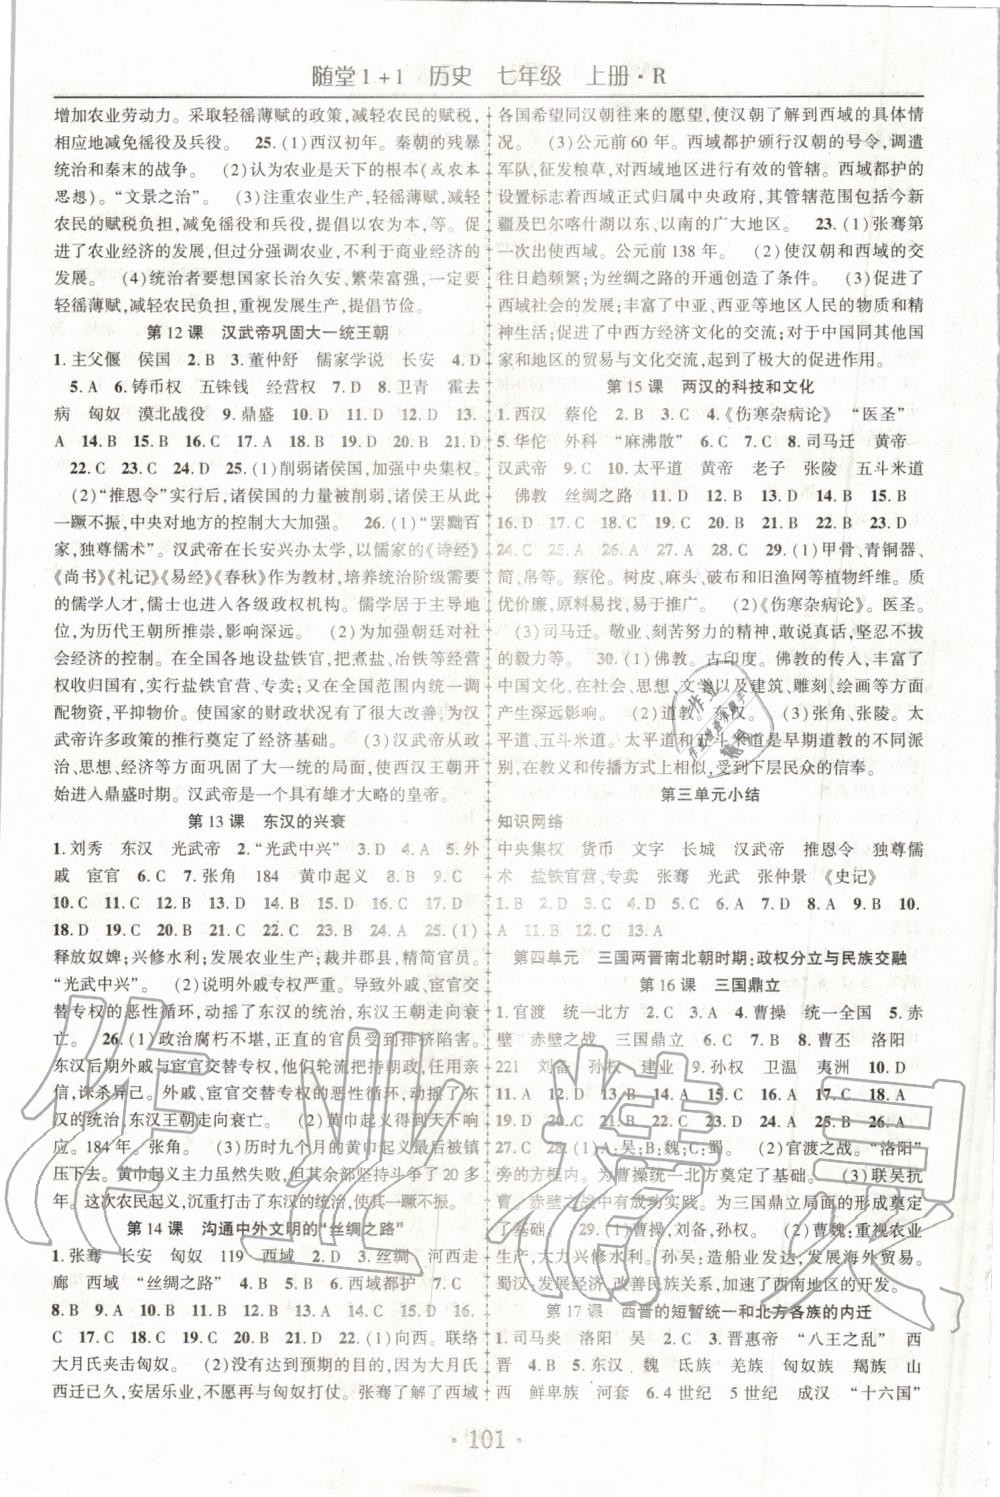 随堂1+1 历史 七年级 上册·R
增加农业劳动力。采取轻徭薄赋的政策,减轻农民的赋税,
相应地减免徭役及兵役。 25.(1)西汉初年。秦朝的残暴
统治和秦末的战争。 (2)认为农业是天下的根本(或农本
思想)。“文景之治”。 (3)注重农业生产,轻徭薄赋,减轻
农民的赋税负担,减免徭役和兵役,提倡以农为本,等。促
进了农业经济的发展,但过分强调农业,不利于商业经济的
发展。 (4)统治者要想国家长治久安、繁荣富强,一定要
轻徭薄赋,减轻农民负担,重视发展生产,提倡节俭。
第12课 汉武帝巩固大一统王朝
1.主父偃 侯国 2.B 3.董仲舒 儒家学说 长安 4.D
5.A 6.铸币权 五铢钱 经营权 7.D 8.卫青 霍去
病 匈奴 漠北战役 9.鼎盛 10.D 11.D 12.D 13.
A 14.B 15.B 16.B 17.D 18.C 19.D 20.B 21.D
22.C 23.C 24.D 25.(1)削弱诸侯国,加强中央集权。
(2)“推恩令”实行后,诸侯国的权力被削弱,诸侯王从此
一蹶不振,中央对地方的控制大大加强。 26.(1)“罢黜百
家,独尊儒术”。汉武帝在长安兴办太学,以儒家的《诗经》
《尚书》《礼记》《易经》《春秋》作为教材,培养统治阶级需要
的儒学人才,儒士也进入各级政权机构。儒学居于主导地
位,为历代王朝所推崇,影响深远。 (2)为加强朝廷对社
会经济的控制。在全国各地设盐铁官,把煮盐、冶铁等经营
权收归国有,实行盐铁官营、专卖;又在全国范围内统一调
配物资,平抑物价。使国家的财政状况有了很大改善,为汉
武帝许多政策的推行奠定了经济基础。 (3)汉武帝从政
治、思想、经济等方面巩固了大一统的局面,使西汉王朝开
始进入鼎盛时期。汉武帝是一个具有雄才大略的皇帝。
第13课 东汉的兴衰
1.刘秀 东汉 光武帝 2.“光武中兴” 3.D 4.A 5.外
戚 宦官 6.C 7.张角 184 黄巾起义 8.B 9.C
10.C 11.C 12.D 13.B 14.D 15.C 16.D 17.D
18.D 19.C 20.B 21.B 22.C 23.A 24.A 25.(1)
释放奴婢;兴修水利;发展农业生产;精简官员。
“光武中兴”。 (2)说明外戚专权严重。导致外戚、宦官
交替专权的恶性循环,动摇了东汉的统治,东汉王朝走向衰
亡。 26.(1)政治腐朽不堪,正直的官员受到排挤陷害。
东汉后期外戚与宦官交替专权,他们轮流把持朝政,任用亲
信,诛杀异己。外戚、宦官交替专权的恶性循环,动摇了东
汉的统治,东汉王朝走向衰亡。 (2)黄巾起义得到天下响
应。184年。张角。 (3)历时九个月的黄巾起义最后被镇
压下去。黄巾起义主力虽然失败,但其余部坚持斗争了20多
年。这次农民起义,沉重打击了东汉的统治,使其一蹶不振。
第14课 沟通中外文明的“丝绸之路”
1.张骞 长安 匈奴 119 西域 2.D 3.丝绸 河西走
廊 西域 “丝绸之路” 4.B 5.B 6.西域都护 7.C
8.B 9.A 10.B 11.C 12.B 13.A 14.B 15.D 16.
C 17.C 18.C 19.D 20.D 21.D 22.(1)向西。联络
大月氏夹击匈奴。 (2)没有达到预期的目的,因大月氏
西迁已久,安居乐业,不愿再与匈奴打仗。张骞了解了西域
各国希望同汉朝往来的愿望,使汉朝了解到西域的具体情
况。 (3)公元前60年。西域都护颁行汉朝的号令,调遣
军队,征发粮草,对西域地区进行有效的管辖。西域都护的
设置标志着西域正式归属中央政府,其管辖范围包括今新
疆及巴尔喀什湖以东、以南的广大地区。 23.(1)张骞第
一次出使西域。公元前138年。 (2)使汉朝和西域的交
往日趋频繁;为丝绸之路的开通创造了条件。 (3)促进了
西域社会的发展;丰富了中亚、西亚等地区人民的物质和精
神生活;促进了中西方经济文化的交流;对于中国同其他
国家和地区的贸易与文化交流,起到了极大的促进作用。
第15课 两汉的科技和文化
1.西汉 蔡伦 2.B 3.C 4.《伤寒杂病论》 “医圣”
5.华佗 外科 “麻沸散” 6.C 7.C 8.司马迁 黄帝
汉武帝 9.C 10.太平道 黄帝 老子 张陵 五斗米道
佛教 丝绸之路 11.D 12.B 13.D 14.B 15.B
16.D 17.D 18.C 19.B 20.C 21.B 22.B 23.D
24.C 25.A 26.A 27.C 28.C 29.(1)甲骨、青铜器、
简、帛等。蔡伦。树皮、麻头、破布和旧渔网等植物纤维。质
优价廉,原料易找,易于推广。 (2)《伤寒杂病论》。医圣。
(3)司马迁。敬业、刻苦努力的精神,敢说真话,坚忍不拔
的毅力等。 30.(1)佛教。古印度。佛教的传入,丰富了
中国文化,在社会、思想、文学以及建筑、雕刻、绘画等方面
产生深远影响。 (2)道教。东汉。 (3)张角、张陵。太
平道、五斗米道。太平道和五斗米道是早期道教的两个派
别,在教义和传播方式上相似,受到下层民众的信奉。
第三单元小结
知识网络
中央集权 货币 文字 长城 汉武帝 推恩令 独尊儒
术 盐铁官营、专卖 张骞 光武 张仲景 《史记》
1.B 2.D 3.D 4.C 5.C 6.A 7.D 8.A 9.B 10.
A 11.C 12.C 13.A
第四单元 三国两晋南北朝时期:政权分立与民族交融
第16课 三国鼎立
1.官渡 统一北方 2.C 3.A 4.曹操 统一全国 5.赤
壁 赤壁之战 三国鼎立 6.D 7.B 8.曹丕 洛阳
221 刘备 孙权 建业 9.孙权 卫温 夷洲 10.D
11.A 12.B 13.D 14.B 15.D 16.C 17.C 18.A
19.D 20. 21.D 22.A 23.A 24.A 25.B 26.A
27.C 28.(1)A:吴;B:魏;C:蜀。 (2)官渡之战。“洛阳”
旁的方框内。为曹魏统一北方奠定了基础。 (3)联吴抗
曹。赤壁之战中有成功实践。为三国鼎立局面的形成奠定
了基础。 29.(1)曹操,刘备,孙权。 (2)曹魏:重视农业
生产,大力兴修水利。孙吴:造船业发达,发展海外贸易。
蜀汉:发展经济,改善民族关系,加速了西南地区的开发。
第17课 西晋的短暂统一和北方各族的内迁
1.司马炎 洛阳 吴 2.C 3.晋惠帝 “八王之乱” 西
晋 4.B 5.东汉 魏 氐族 羌族 匈奴族 羯族 山
西 鲜卑族 河套 6.4世纪 5世纪 成汉 “十六国”
·101·
作业精灵